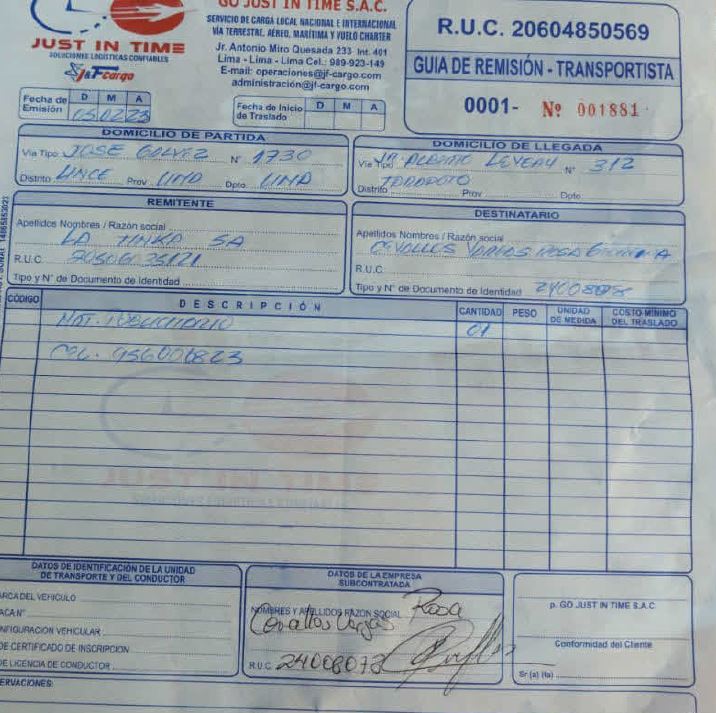 GO JUST IN TIME S.A.C.
SERVICIO DE CARGA LOCAL NACIONAL E INTERNACIONAL
VÍA TERRESTRE, AÉREO, MARÍTIMA Y VUELO CHARTER
Jr. Antonio Miro Quesada 233 Int. 401
Lima - Lima - Lima Cel.: 989-923-149
E-mail: operaciones@jf-cargo.com
administración@jf-cargo.com
JUST IN TIME
SOLUCIONES LOGÍSTICAS CONFIABLES
J&F cargo
R.U.C. 20604850569
GUIA DE REMISIÓN - TRANSPORTISTA
0001- Nº 001881
Fecha de Emisión D M A
Fecha de Inicio de Traslado D M A
DOMICILIO DE PARTIDA
Vía Tipo JOSE GALVEZ N° 1730
Distrito LINCE Prov LIMA Dpto LIMA
DOMICILIO DE LLEGADA
Vía Tipo Jr. ALBERTO LEVEAU N° 312
Distrito TARAPOTO Prov Dpto
REMITENTE
Apellidos Nombres / Razón social
LA TINKA SA
R.U.C.
Tipo y N° de Documento de Identidad
DESTINATARIO
Apellidos Nombres / Razón social
CEVALLOS VARGAS ROSA
R.U.C.
Tipo y N° de Documento de Identidad
CÓDIGO DESCRIPCIÓN CANTIDAD PESO UNIDAD DE MEDIDA COSTO MÍNIMO DEL TRASLADO
MAT. PUBLICITARIO 01
CEL. 956006823
DATOS DE IDENTIFICACIÓN DE LA UNIDAD DE TRANSPORTE Y DEL CONDUCTOR
ARCA DEL VEHÍCULO
ACA N°
NFIGURACIÓN VEHICULAR
DE CERTIFICADO DE INSCRIPCION
DE LICENCIA DE CONDUCTOR
ERVACIONES:
DATOS DE LA EMPRESA SUBCONTRATADA
NOMBRES Y APELLIDOS RAZÓN SOCIAL Rosa
Cevallos Vargas
R.U.C. 24008078
p. GO JUST IN TIME S.A.C.
Conformidad del Cliente
Sr (a) (ta)